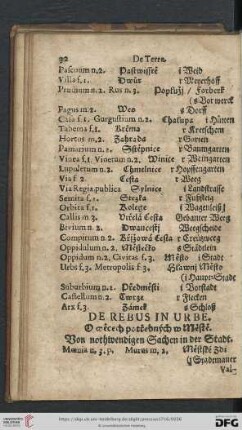 90 De Terra.
Pascuum n.2. Pastwisstě i Weid
Villa f.1. Dwůr r Meyerhoff
Prædium n.2. Rus n.3. Poplužj / Forberk
s Vorwerck
Pagus m.2. Wes s Dorff
Casa f.1. Gurgustium n.2. Chalupa i Hütten
Taberna f.1. Krčma r Kretscham
Hortus m.2. Zahrada r Garten
Pomarium n.2. Sstěpnice r Baumgarten
Vinea f.1. Vinetum n.2. Winice r Weingarten
Lupuletum n.2. Chmelnice r Hopffengarten
Via f.2 Cesta r Weeg
Via Regia publica Sylnice i Landstrasse
Semita f.1. Stezka r Fußsteig
Orbita f.1. Kolegie i Wagenleiß
Callis m 3. Vrčená Cesta Gebaner Weeg
Bivium n 2. Dwaucestj Weegscheide
Compitum n 2. Křjžowá Cesta r Creutzweeg
Oppidulum n.2. Městečko s Städtlein
Oppidum n.2. Civitas f.3. Město i Stadt
Urbs f.3. Metropolis f.3. Hlawnj Město
(i Haupt-Stadt
Suburbium n.2. Předměstj i Vorstadt
Castellum n.2. Twrze r Flecken
Arx f.3. Zámek s Schloß
DE REBUS IN URBE.
O wěcech potřebných w Městě.
Von nothwendigen Sachen in der Stadt.
Mœnia n.3.p. Murus m.2. Měststé Zdi
(i Stadtmauer
Val-
DFG